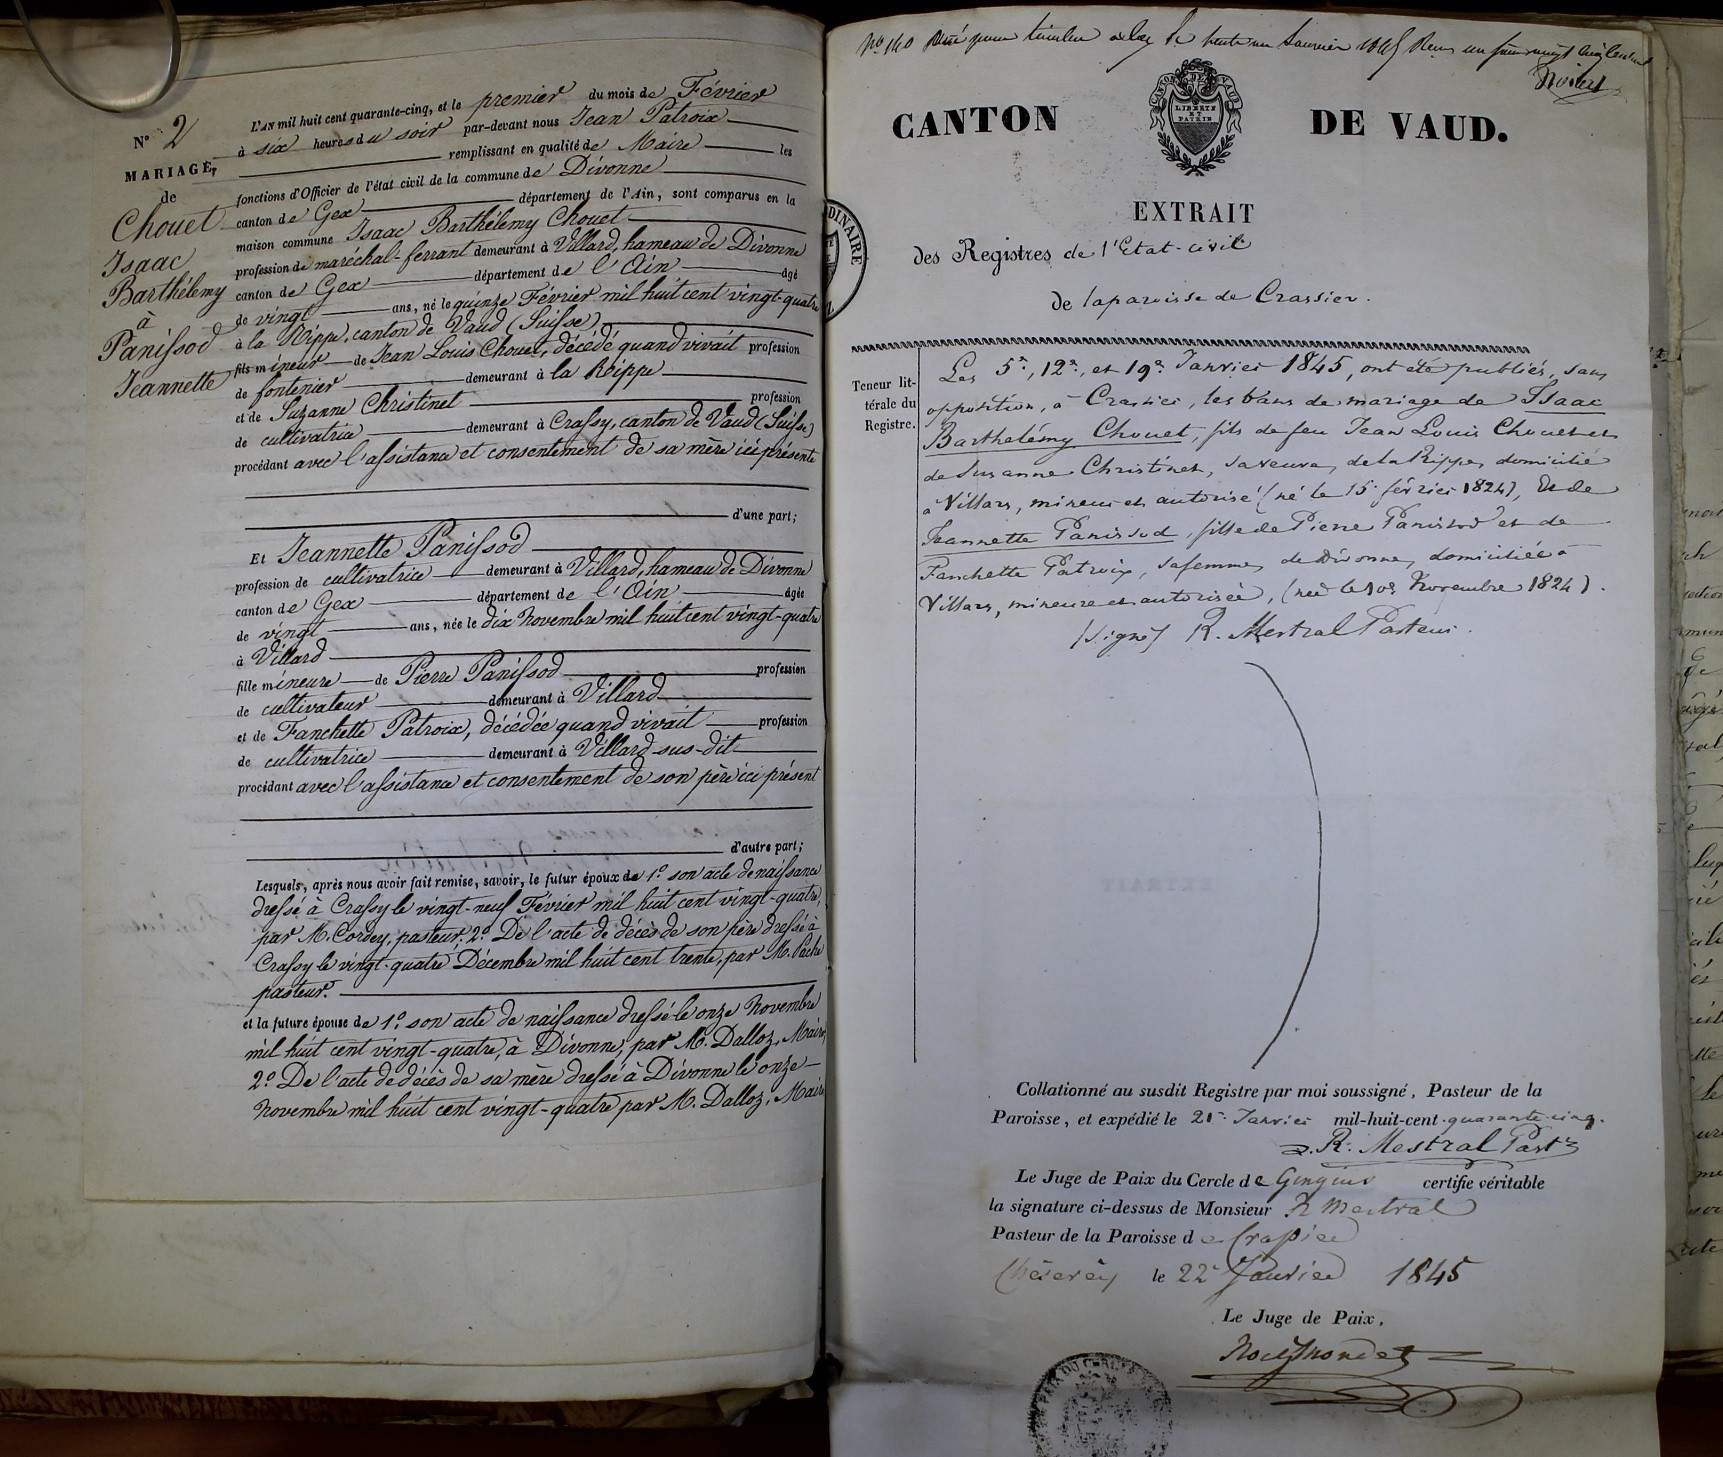 N° 2
MARIAGE,
de
Chouet
Isaac
Barthélemy
à
Panissod
Jeannette
L'AN mil huit cent quarante-cinq, et le premier du mois de Février
à six heures du soir par-devant nous Jean Patroix
remplissant en qualité de Maire les
fonctions d'Officier de l'état civil de la commune de Divonne
canton de Gex département de l'Ain, sont comparus en la
maison commune Isaac Barthélemy Chouet
profession de maréchal-ferrant demeurant à Villard, hameau de Divonne
canton de Gex département de l'Ain âgé
de vingt ans, né le quinze Février mil huit cent vingt-quatre
à la Rippe, canton de Vaud (Suisse)
fils mineur de Jean Louis Chouet, décédé quand vivait profession
de fontenier demeurant à la Rippe
et de Suzanne Christinet profession
de cultivatrice demeurant à Crassy, canton de Vaud (Suisse)
procédant avec l'assistance et consentement de sa mère ici présente
d'une part;
Et Jeannette Panissod
profession de cultivatrice demeurant à Villard, hameau de Divonne
canton de Gex département de l'Ain âgée
de vingt ans, née le dix Novembre mil huit cent vingt-quatre
à Villard
fille mineure de Pierre Panissod profession
de cultivateur demeurant à Villard
et de Fanchette Patroix, décédée quand vivait profession
de cultivatrice demeurant à Villard sus-dit
procédant avec l'assistance et consentement de son père ici présent
d'autre part;
Lesquels, après nous avoir fait remise, savoir, le futur époux de 1° son acte de naissance
dressé à Crassy le vingt-neuf Février mil huit cent vingt-quatre,
par M. Cordey, pasteur. 2° De l'acte de décès de son père dressé à
Crassy le vingt-quatre Décembre mil huit cent trente, par M. Pache
pasteur.
et la future épouse de 1° son acte de naissance dressé le onze Novembre
mil huit cent vingt-quatre, à Divonne, par M. Dalloz, Maire,
2° De l'acte de décès de sa mère dressé à Divonne le onze
Novembre mil huit cent vingt-quatre par M. Dalloz, Maire
N° 140 pour timbre à Gex le trente un Janvier 1845 Reçu un franc
CANTON DE VAUD.
LIBERTÉ
ET
PATRIE
EXTRAIT
des Registres de l'Etat-civil
de la paroisse de Crassier.
DINAIRE
Teneur lit-
térale du
Registre.
Les 5e, 12e, et 19e Janvier 1845, ont été publiés, sans
opposition, à Crassier, les bans de mariage de Isaac
Barthélémy Chouet, fils de feu Jean Louis Chouet et
de Susanne Christinet, sa veuve, de la Rippe, domicilié
à Villars, mineur et autorisé (né le 15e février 1824), Et de
Jeannette Panissod, fille de Pierre Panissod et de
Fanchette Patroix, sa femme, de Divonne, domiciliée à
Villars, mineure et autorisée, (née le 10e Novembre 1824).
(signé) R. Mestral Pasteur.
Collationné au susdit Registre par moi soussigné, Pasteur de la
Paroisse, et expédié le 21e Janvier mil-huit-cent quarante cinq.
R. Mestral Past
Le Juge de Paix du Cercle de Gingins certifie véritable
la signature ci-dessus de Monsieur R Mestral
Pasteur de la Paroisse de Crassier
Chéserex le 22e Janvier 1845
Le Juge de Paix,
PAIX DU CERCLE